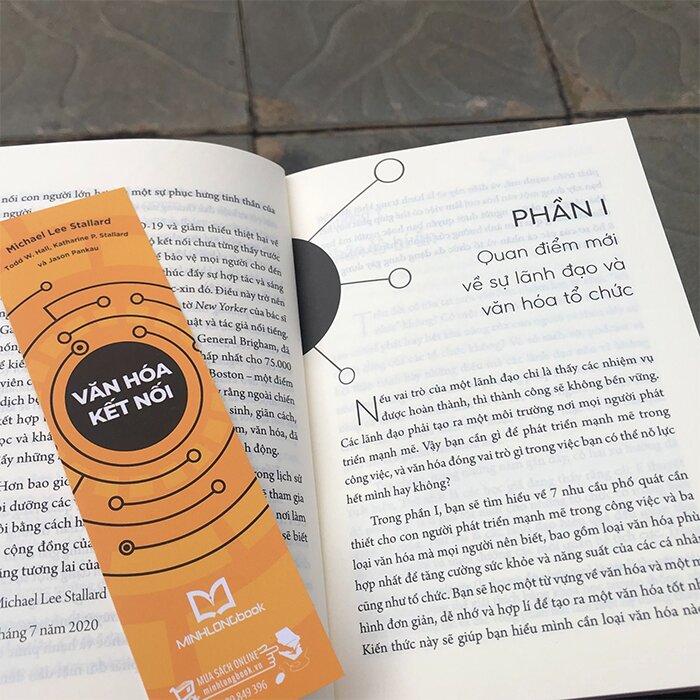 nối con người lớn một sự phục hưng tinh thần của
người
D-19 và giảm thiểu thiệt hại về
bộ kết nối chưa từng thấy trước
để bảo vệ mọi người cho đến
thúc đẩy sự hợp tác và sáng
c-xin đó. Điều này trở nên
tờ New Yorker của bác sĩ
uật và tác giả nổi tiếng,
General Brigham, đã
hấp nhất cho 75.000
Boston – một điểm
rằng ngoài chiến
sinh, giãn cách,
văn hóa, đã
h động.
Hơn bao giờ
trong lịch sử
tham gia
nơi làm
sẽ biết
Michael Lee Stallard
háng 7 năm 2020
Michael Lee Stallard
Todd W. Hall, Katharine P. Stallard
và Jason Pankau
VĂN HÓA
KẾT NỐI
MINHLONGbook
MUA SÁCH ONLINE
minhlongbook.vn
849 396
PHẦN I
Quan điểm mới
về sự lãnh đạo và
văn hóa tổ chức
Nếu vai trò của một lãnh đạo chỉ là thấy các nhiệm vụ
được hoàn thành, thì thành công sẽ không bền vững.
Các lãnh đạo phải tạo ra một môi trường nơi mọi người phát
triển mạnh mẽ. Vậy bạn cần gì để phát triển mạnh mẽ trong
công việc, và văn hóa đóng vai trò gì trong việc bạn có thể nỗ lực
hết mình hay không?
Trong phần I, bạn sẽ tìm hiểu về 7 nhu cầu phổ quát cần
thiết cho con người phát triển mạnh mẽ trong công việc và ba
loại văn hóa mà mọi người nên biết, bao gồm loại văn hóa phù
hợp nhất để tăng cường sức khỏe và năng suất của các cá nhâ
cũng như tổ chức. Bạn sẽ học một từ vựng về văn hóa và một m
hình đơn giản, dễ nhớ và hợp lí để tạo ra một văn hóa tốt n
Kiến thức này sẽ giúp bạn hiểu mình cần loại văn hóa nà